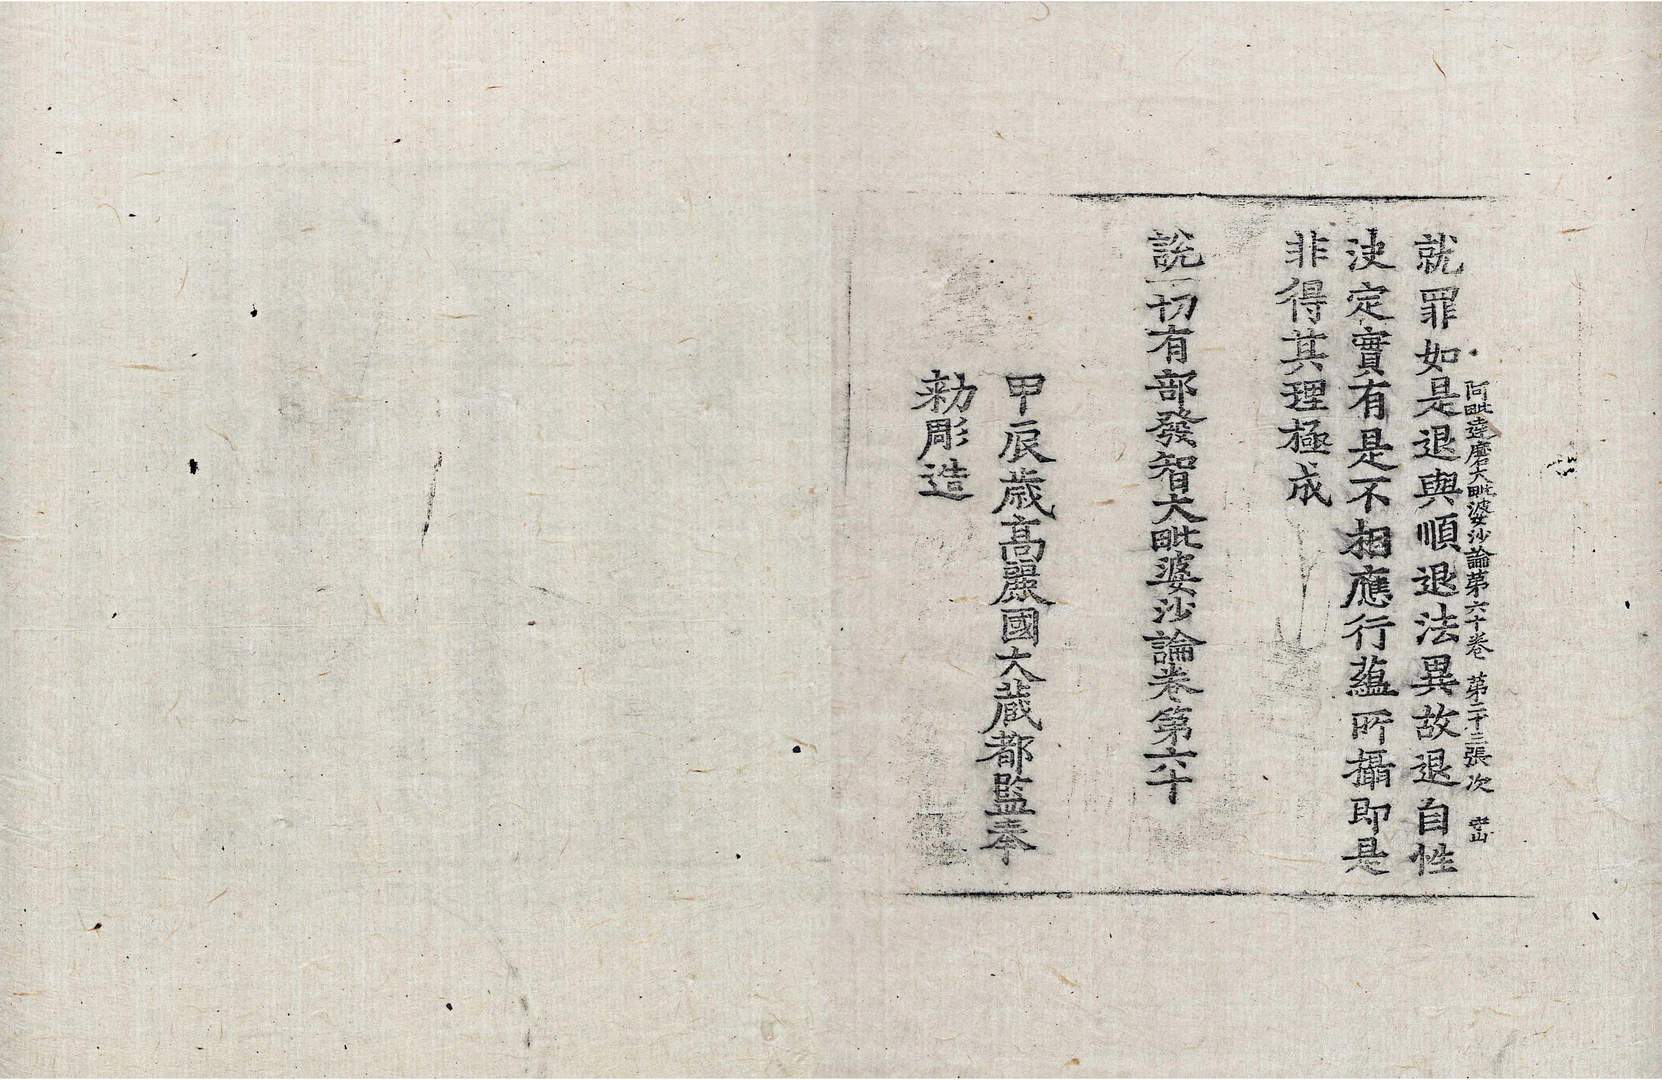 阿毗達磨大毗婆沙論第六十卷 第二十三張 次
就罪如是退與順退法異故退自性
决定實有是不相應行蘊所攝即是
非得其理極成
說一切有部發智大毗婆沙論卷第六十
甲辰歲高麗國大藏都監奉
勑彫造